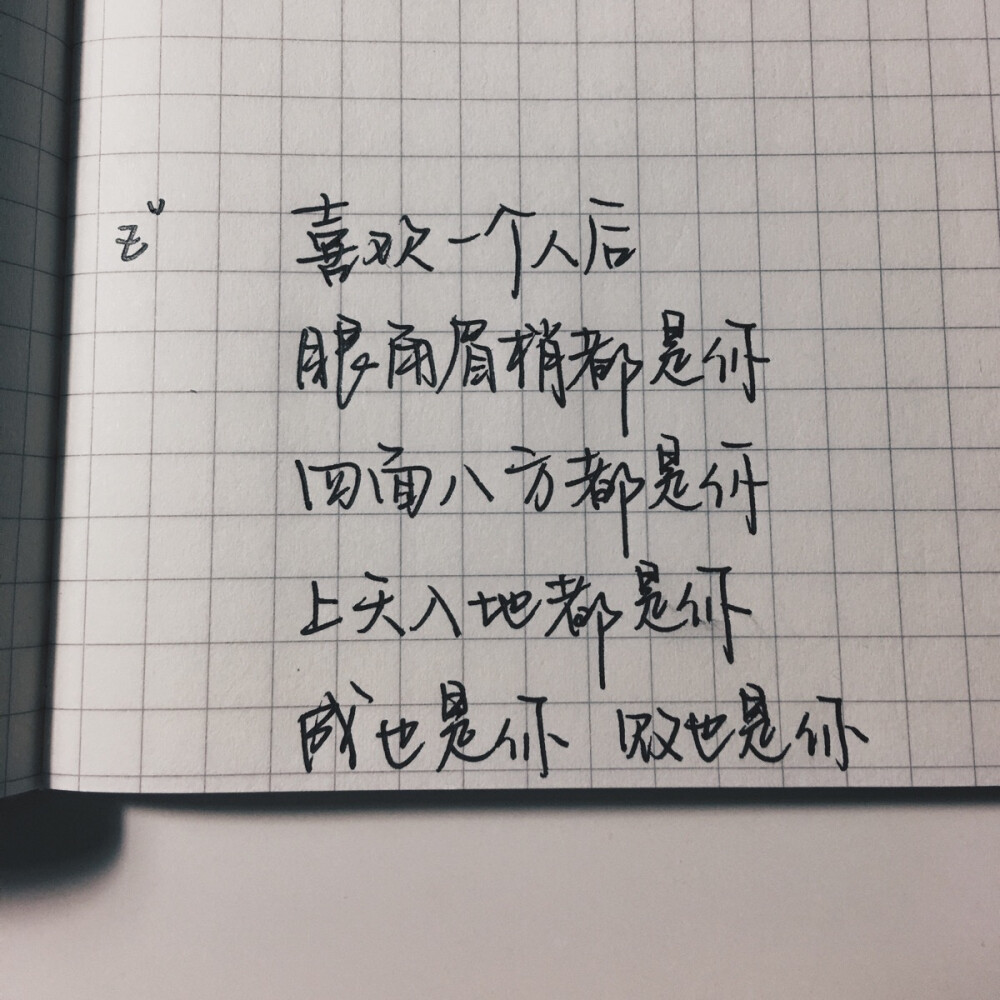 喜欢一个人后
眼角眉梢都是你
四面八方都是你
上天入地都是你
成也是你 败也是你